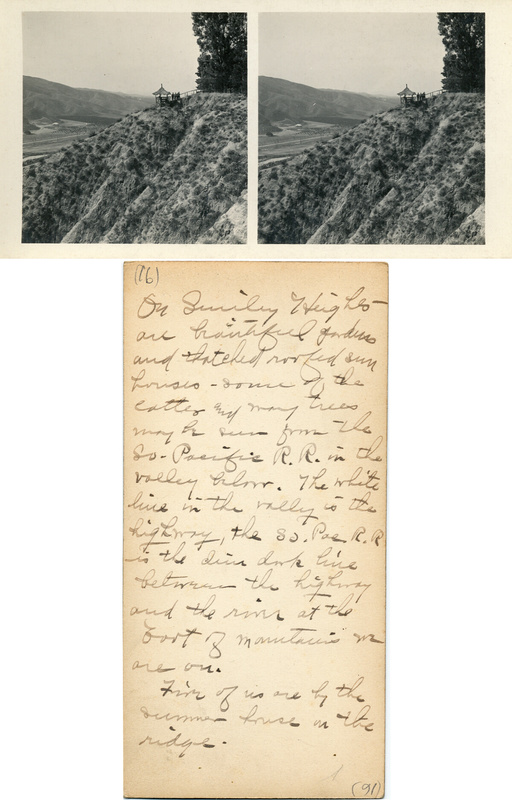 (76)
On Smiley Heights
are beautiful gardens
and thatched roofed sun
houses - some of the
latter and many trees
may be seen from the
So. Pacific R.R. in the
valley below. The white
line in the valley is the
highway, the So. Pac. R.R.
is the dim dark line
between the highway
and the river at the
foot of mountains we
are on.
Five of us are by the
summer house on the
ridge.
(91)